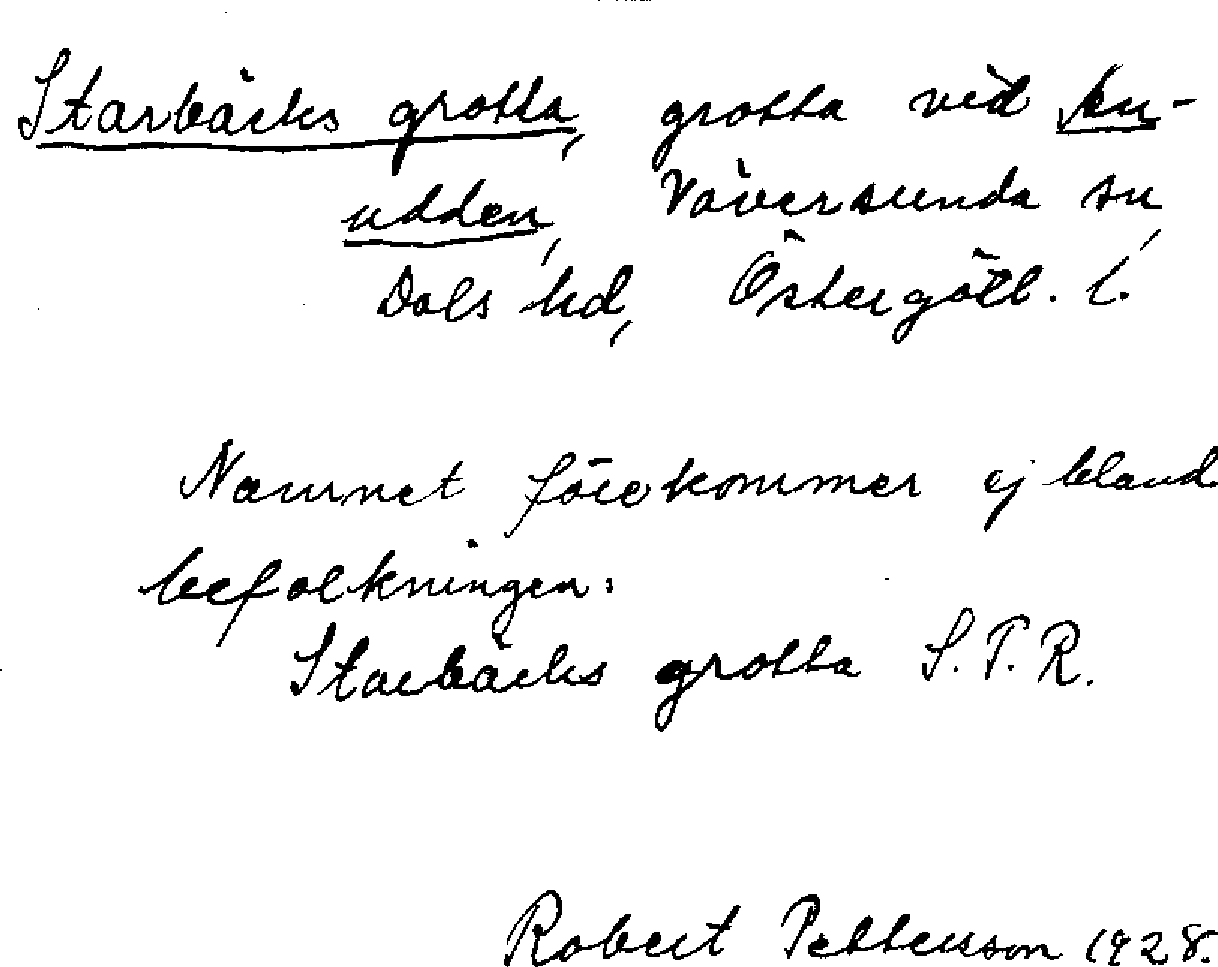 Starbäcks grotta, grotta vid Ku-
udden, Väversunda sn,
Dals hd, Östergötl. l.
Namnet förekommer ej bland
befolkningen.
Starbäcks grotta S.T.R.
Robert Pettersson 1928.